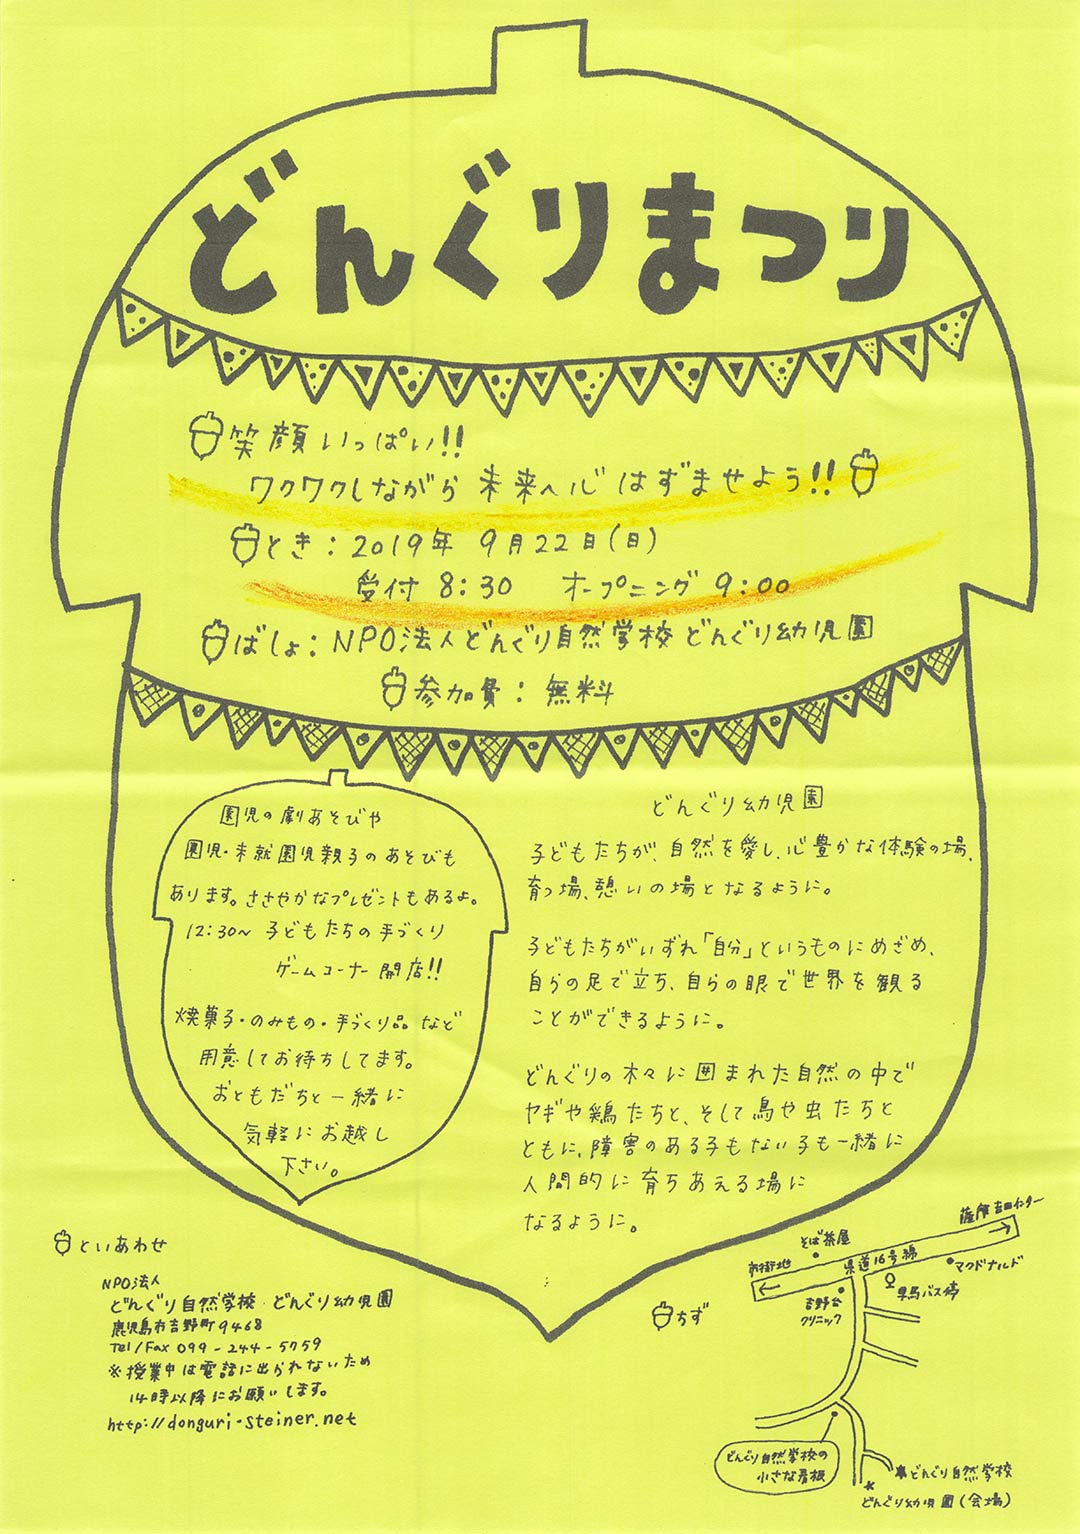 どんぐりまつり
笑顔いっぱい!!
ワクワクしながら 未来へ心はずませよう!!
とき：2019年 9月22日(日)
受付 8:30 オープニング 9:00
ばしょ：NPO法人どんぐり自然学校 どんぐり幼児園
参加費：無料
園児の劇あそびや
園児・未就園児親子のあそびも
あります。ささやかなプレゼントもあるよ。
12:30〜 子どもたちの手づくり
ゲームコーナー開店!!
焼菓子・のみもの・手づくり品など
用意してお待ちしてます。
おともだちと一緒に
気軽にお越し
下さい。
どんぐり幼児園
子どもたちが、自然を愛し、心豊かな体験の場、
育つ場、憩いの場となるように。
子どもたちがいずれ「自分」というものにめざめ、
自らの足で立ち、自らの眼で世界を観る
ことができるように。
どんぐりの木々に囲まれた自然の中で
ヤギや鶏たちと、そして鳥や虫たちと
ともに、障害のある子もない子も一緒に
人間的に育ちあえる場に
なるように。
といあわせ
NPO法人
どんぐり自然学校 どんぐり幼児園
鹿児島市吉野町9468
Tel/Fax 099-244-5759
※授業中は電話に出られないため
14時以降にお願いします。
http://donguri-steiner.net
ちず
薩摩吉田インター
そば茶屋
市街地
県道16号線
マクドナルド
早馬バス停
吉野台
クリニック
どんぐり自然学校の
小さな看板
どんぐり自然学校
どんぐり幼児園(会場)